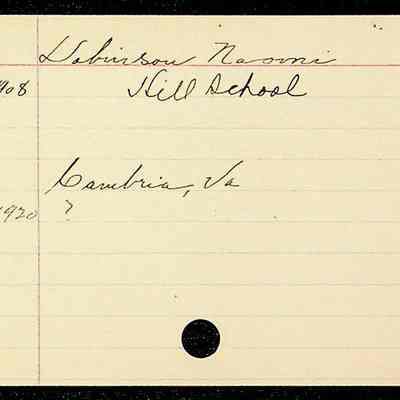 Robinson Naomi
1908 Hill School
Cambria, Va
1920 ?